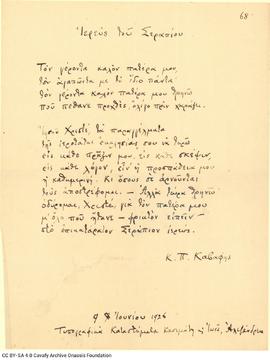 68
Ἱερεὺς τοῦ Σεραπίου
Τὸν γέροντα καλὸν πατέρα μου,
τὸν ἀγαπῶντα με τὸ ἴδιο πάντα·
τὸν γέροντα καλὸν πατέρα μου θρηνῶ
ποῦ πέθανε προχθές, ὀλίγο πρὶν χαράξει.
Ἰησοῦ Χριστέ, τὰ παραγγέλματα
τῆς ἱεροτάτης ἐκκλησίας σου νὰ τηρῶ
εἰς κάθε πρᾶξιν μου, εἰς κάθε σκέψιν,
εἰς κάθε λόγον, εἶν᾽ ἡ προσπάθεια μου
ἡ καθημερινή. Κι ὅσους σὲ ἀρνοῦνται
τοὺς ἀποστρέφομαι. — Ἀλλὰ τώρα θρηνῶ·
ὀδύρομαι, Χριστέ, γιὰ τὸν πατέρα μου
μ᾽ ὅλο ποῦ ἤτανε — φρικτὸν εἰπεῖν —
στὸ ἐπικατάρατον Σεράπιον ἱερεύς.
Κ. Π. Καβάφης
Ἰουνίου 1926
Τυπογραφικὰ Καταστήματα Κασιμάτη & Ἰωνᾶ, Ἀλεξάνδρεια
CC BY-SA 4.0 Cavafy Archive Onassis Foundation